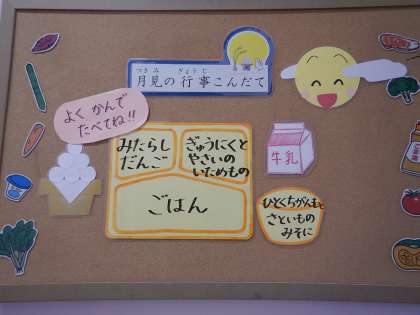 つきみ ぎょうじ
月見の行事こんだて
よく かんで
たべてね!!
みたらし
だんご
ぎゅうにくと
やさいの
いためもの
ごはん
牛乳
ひとくちがんもと
さといもの
みそに